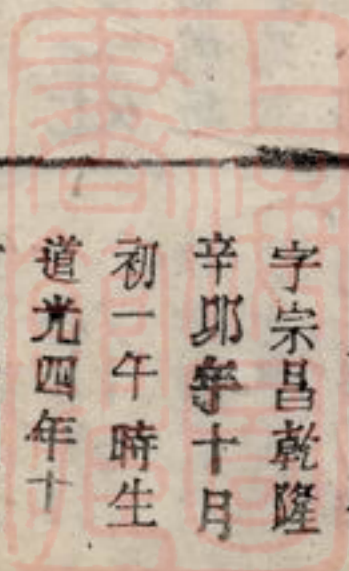 字宗昌乾隆
辛夘年十月
初一午時生
道光四年十